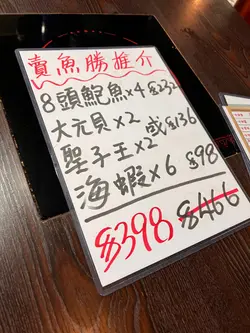 賣魚勝推介
8頭鮑魚×4 $232
大元貝×2 或$136
聖子王×2
海蝦×6 $98
$398 $466